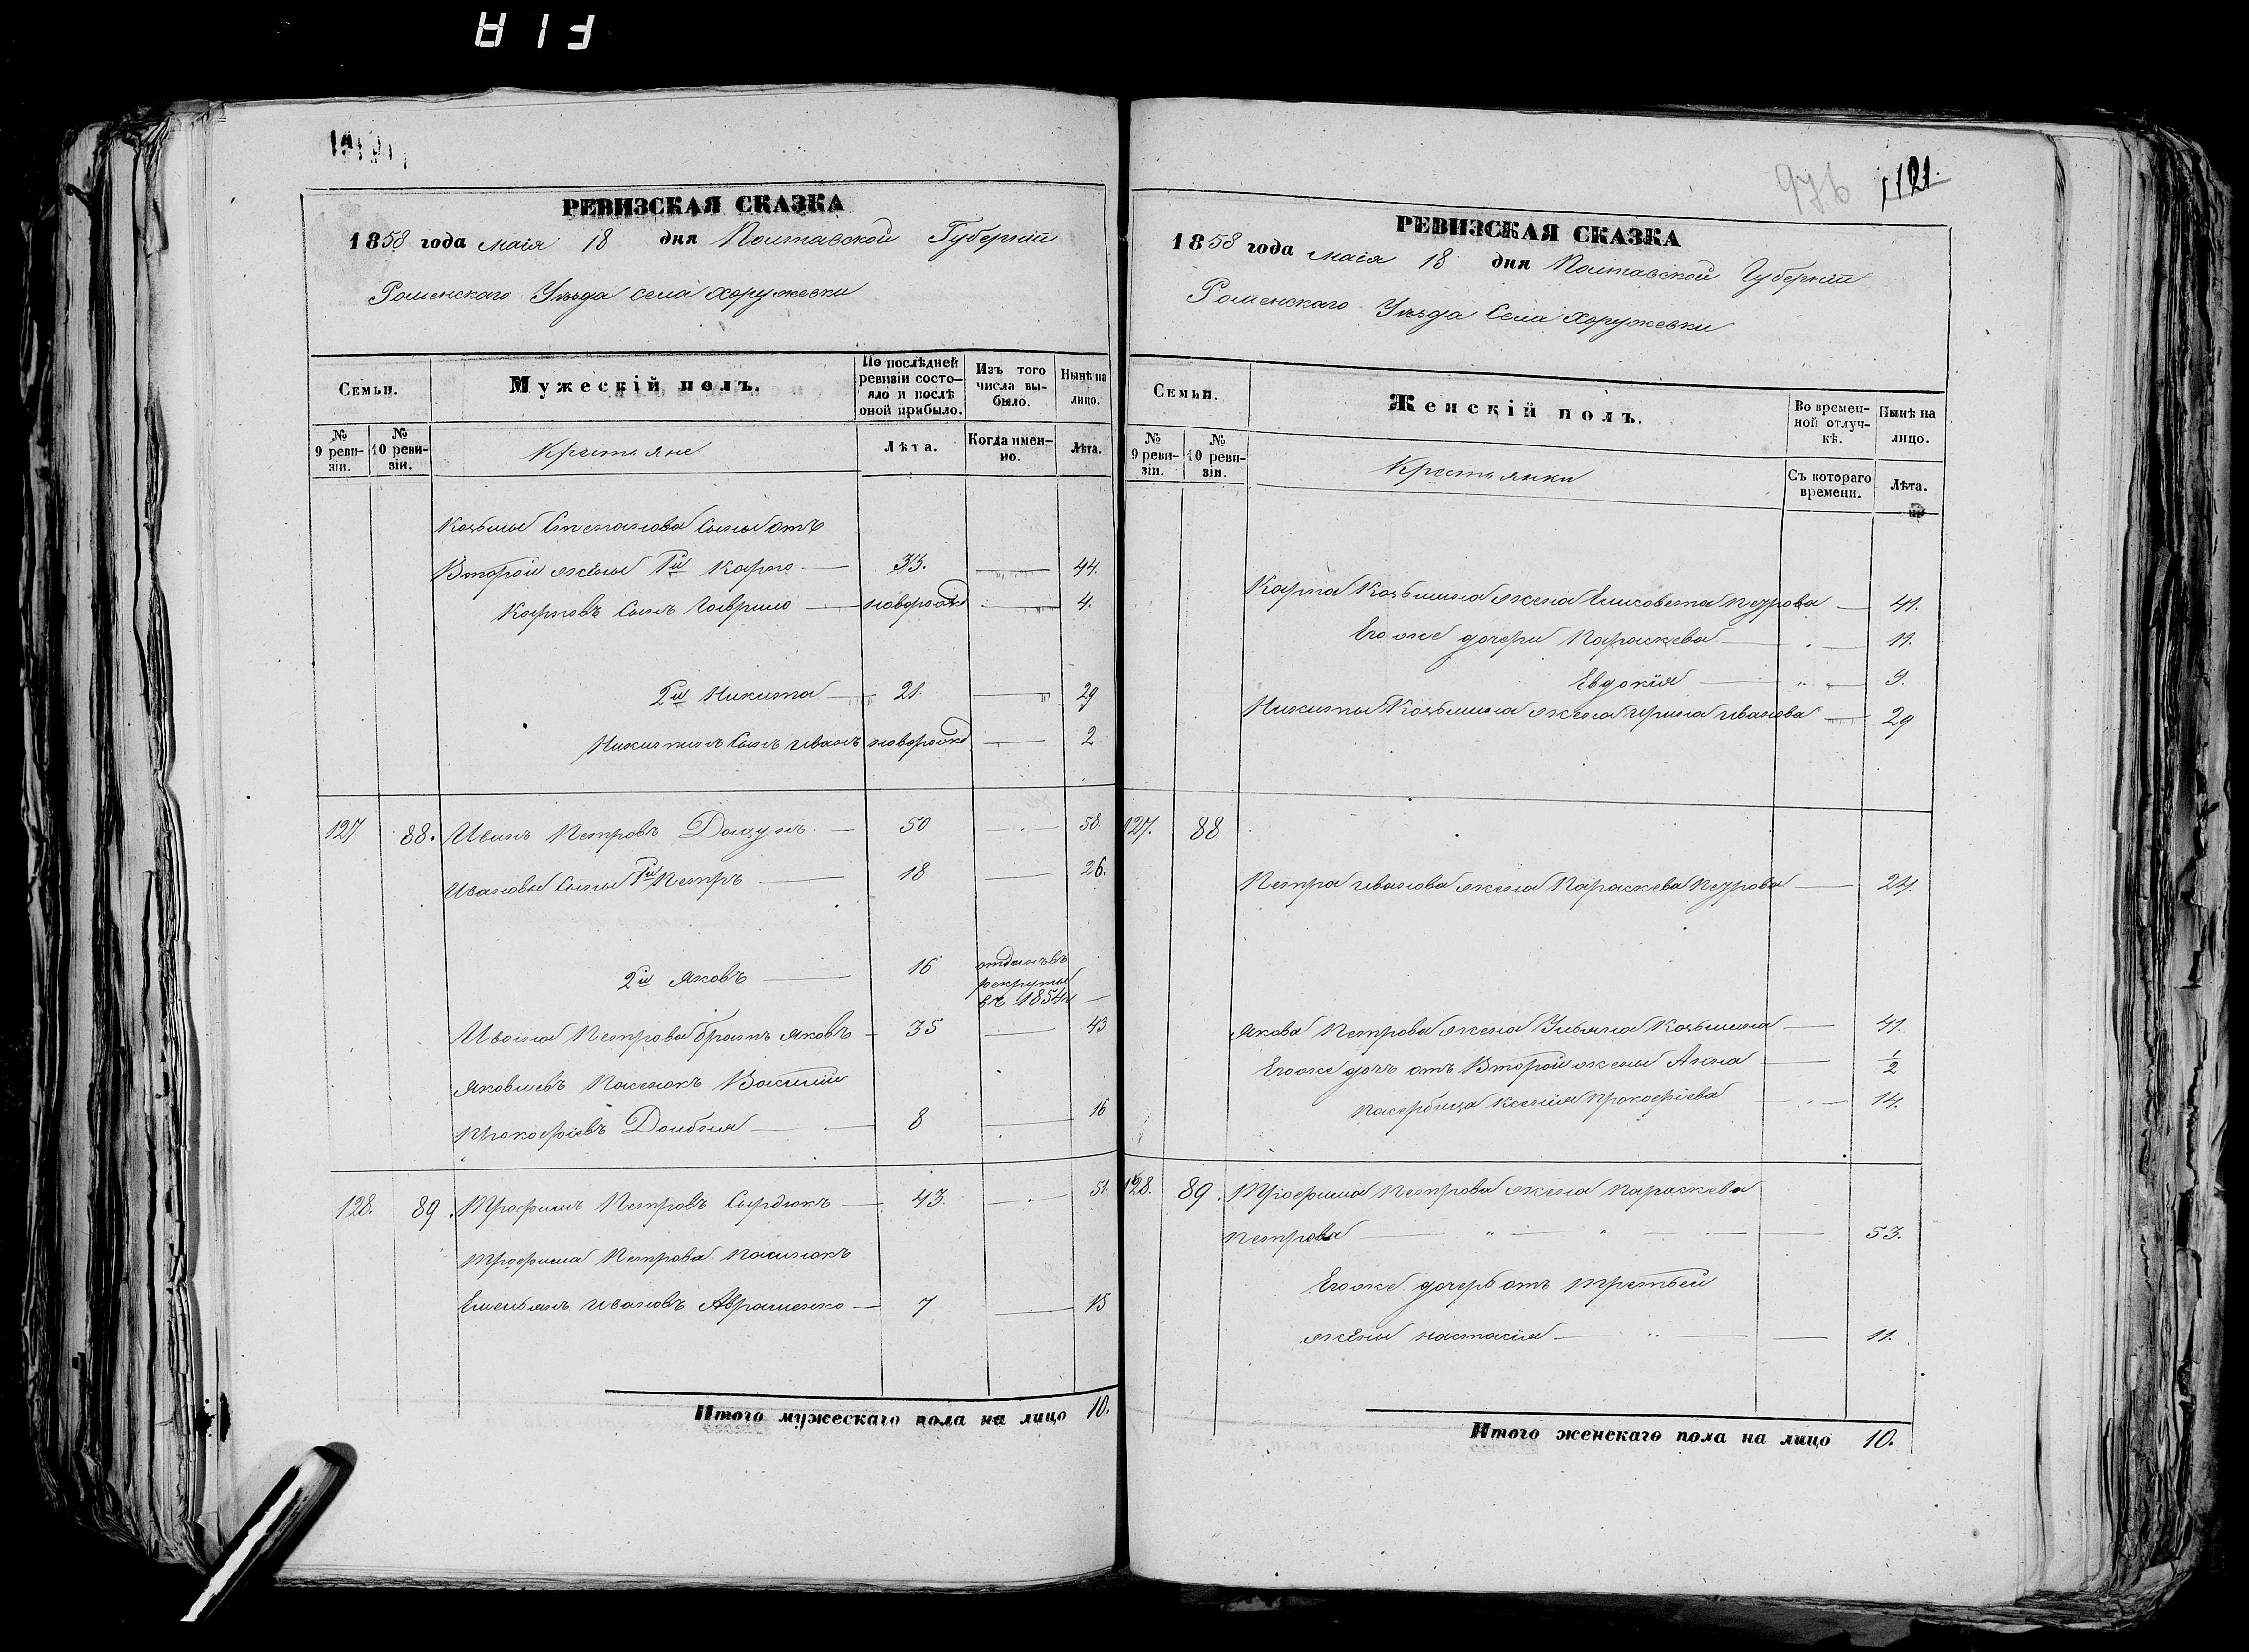 РЕВИЗСКАЯ СКАЗКА
1858 года маія 18 дня Полтавской Губерніи
Роменскаго Уѣзда села Хоружевки
Семьи.
Мужескій полъ.
По послѣдней ревизіи состояло и послѣ оной прибыло.
Изъ того числа выбыло.
Нынѣ на лицо.
№ 9 ревизіи.
№ 10 ревизіи.
Крестьяне
Лѣта.
Когда именно.
Лѣта.
Козьмы Степанова сыны отъ
Второй жены 1й Карпо 33. 44.
Карповъ сынъ Гаврило новорожд 4.
2й Никита 21. 29
Никитинъ сынъ Иванъ новорожд 2
127. 88. Иванъ Петровъ Доцунъ 50 58.
Ивановы сыны 1й Петръ 18 26.
2й Яковъ 16 отданъ въ рекруты въ 1854г
Ивана Петрова братъ Яковъ 35 43.
Яковлевъ пасенокъ Василій
Прокофіевъ Долбня 8 16
128. 89. Трофимъ Петровъ Сырдюкъ 43. 51.
Трофима Петрова пасинокъ
Емельянъ Ивановъ Авраменко 7 15
Итого мужескаго пола на лицо 10.
976 121.
РЕВИЗСКАЯ СКАЗКА
1858 года маія 18 дня Полтавской Губерніи
Роменскаго Уѣзда Села Хоружевки
Семьи.
Женскій полъ.
Во временной отлучкѣ.
Нынѣ на лицо.
№ 9 ревизіи.
№ 10 ревизіи.
Крестьянки
Съ котораго времени.
Лѣта.
Карпа Козьмина жена Елисовета Петрова 41.
Его же дочери Параскева 11.
Евдокія 9.
Никиты Козьмина жена Ирина Иванова 29
127. 88
Петра Иванова жена Параскева Петрова 24.
Якова Петрова жена Ульяна Козьмина 41.
Его же дочь отъ Второй жены Анна 1/2
Пасербица Ксенія Прокофіева 14.
128. 89. Трофима Петрова жена Параскева
Петрова 53.
Его же дочерь отъ третьей
жены Настасія 11.
Итого женскаго пола на лицо 10.